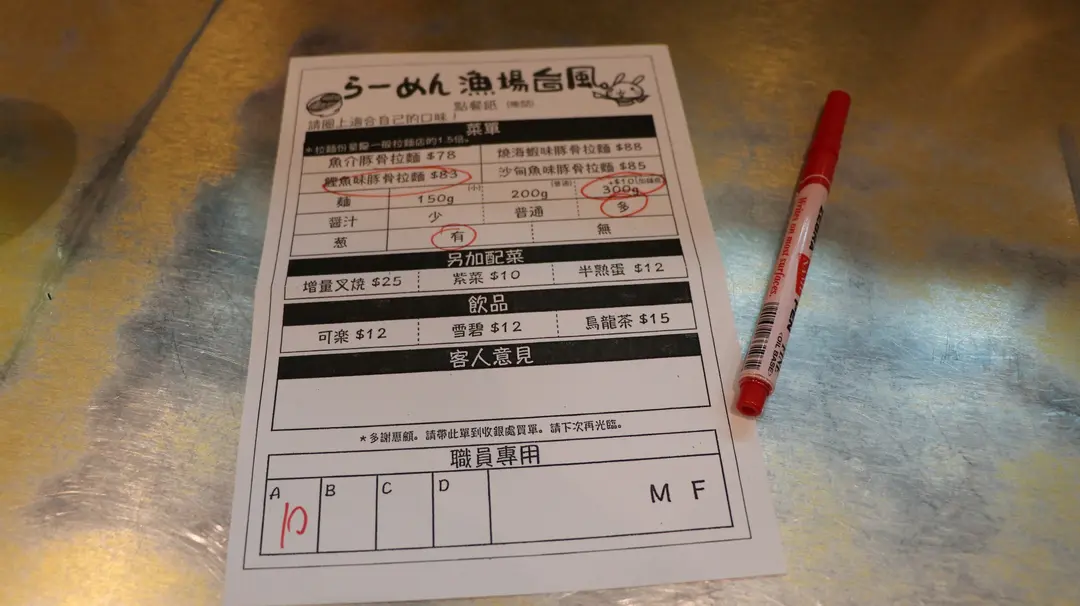 らーめん 漁場台風。
點餐紙 (晚間)
請圈上適合自己的口味！
菜單
*拉麵份量是一般拉麵店的1.5倍。
魚介豚骨拉麵 $78 燒海蝦味豚骨拉麵 $88
鰹魚味豚骨拉麵 $83 沙甸魚味豚骨拉麵 $85
麵 150g (小) 200g (普通) 300g +$10(加麵費)
醤汁 少 普通 多
葱 有 無
另加配菜
增量叉燒 $25 紫菜 $10 半熟蛋 $12
飲品
可楽 $12 雪碧 $12 烏龍茶 $15
客人意見
*多謝惠顧。請帶此單到收銀處買單。請下次再光臨。
職員專用
A B C D M F
ZEBRA
PEN
Writes on most surfaces.
OIL BASE